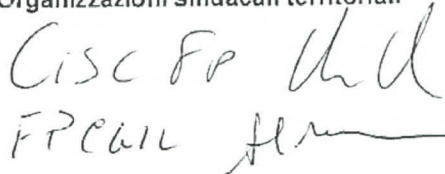 Organizzazioni sindacali territoriali
CISL FP
FP CGIL